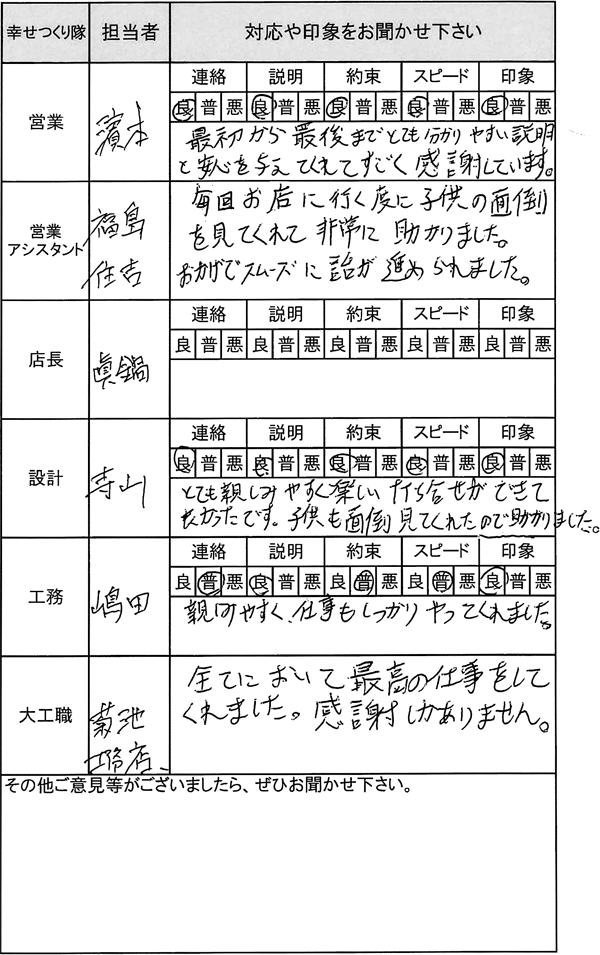 幸せつくり隊 担当者 対応や印象をお聞かせ下さい
営業 濱本
連絡 説明 約束 スピード 印象
良 普 悪 良 普 悪 良 普 悪 良 普 悪 良 普 悪
最初から最後までとても分かりやすい説明
と安心を与えてくれてすごく感謝しています。
営業
アシスタント
福島
住吉
毎回お店に行く度に子供の面倒
を見てくれて非常に助かりました。
おかげでスムーズに話が進められました。
店長 眞鍋
連絡 説明 約束 スピード 印象
良 普 悪 良 普 悪 良 普 悪 良 普 悪 良 普 悪
設計 寺山
連絡 説明 約束 スピード 印象
良 普 悪 良 普 悪 良 普 悪 良 普 悪 良 普 悪
とても親しみやすく楽しい打ち合せができて
良かったです。子供も面倒見てくれたので助かりました。
工務 嶋田
連絡 説明 約束 スピード 印象
良 普 悪 良 普 悪 良 普 悪 良 普 悪 良 普 悪
親しみやすく、仕事もしっかりやってくれました。
大工職
菊池
工務店、
全てにおいて最高の仕事をして
くれました。感謝しかありません。
その他ご意見等がございましたら、ぜひお聞かせ下さい。